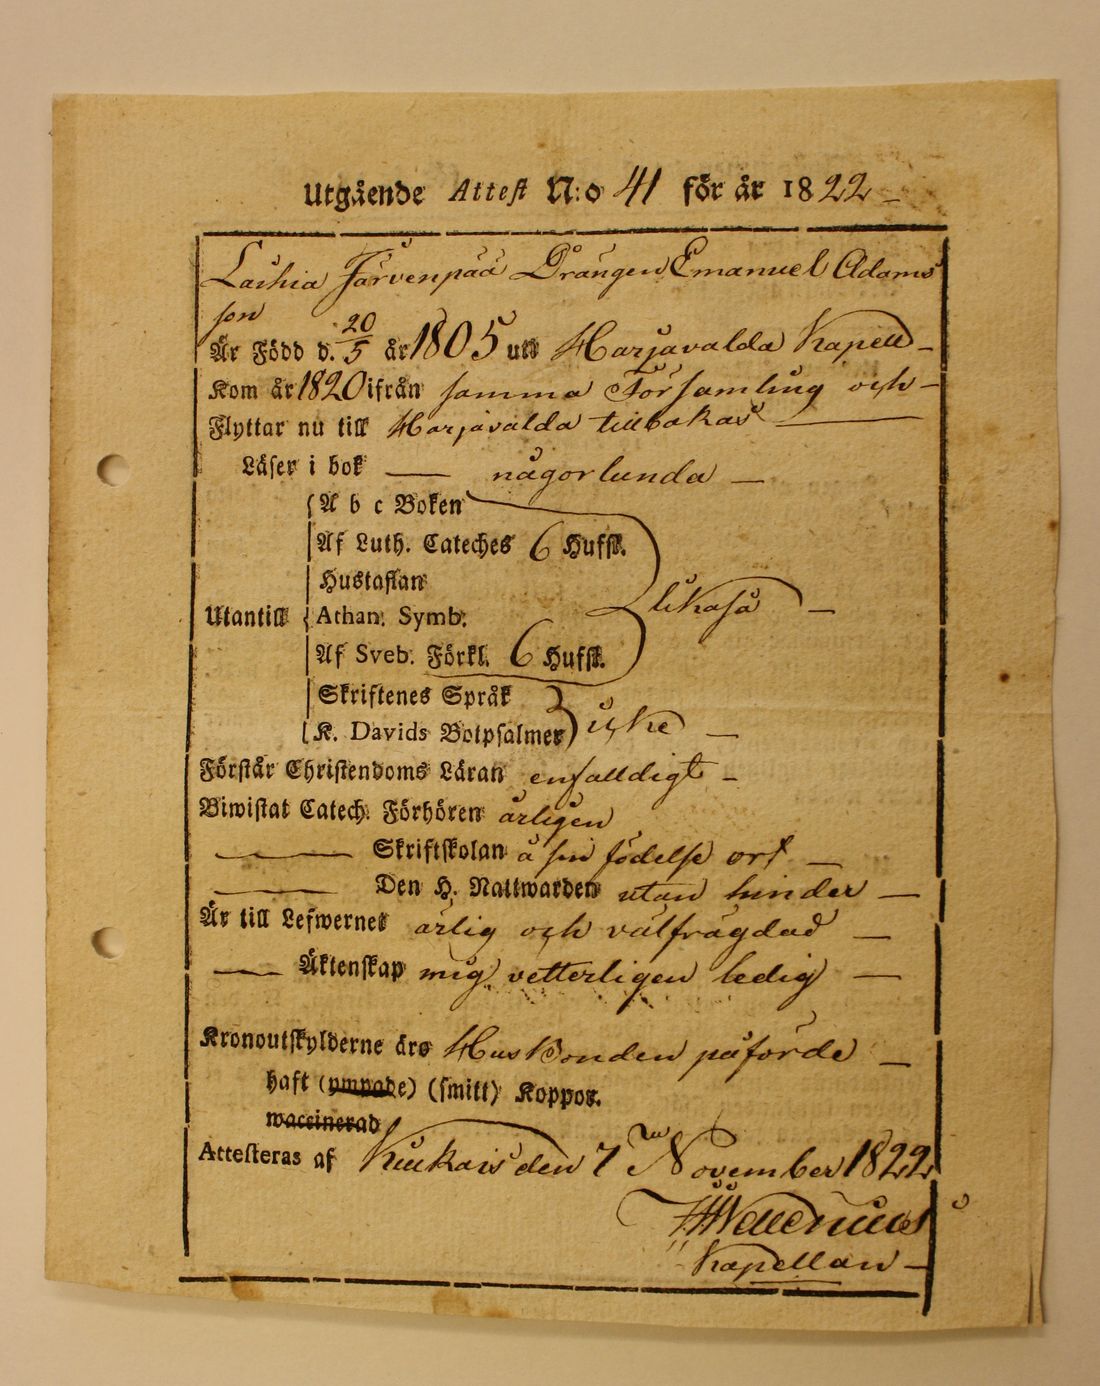 Utgående Attest N:o 41 för år 1822
Laihia Järvenpää Drängen Emanuel Adams
son
Är Född d. 20/5 år 1805 uti Harjavalda Kapell
Kom år 1820 ifrån samma Församling och
Flyttar nu till Harjavalda tillbakas
Läser i bok någorlunda
A b c Boken
Af Luth. Cateches 6 Hufst.
Hustaflan
Utantill Athan. Symb. likaså
Af Sveb. Förkl. 6 Hufst.
Skriftenes Språk
K. Davids Botpsalmer icke
Förstår Christendoms Läran enfalldigt
Biwistat Catech. Förhören årligen
Skriftskolan å sin födelse ort
Den H. Nattwarden utan hinder
Är till Lefwernet ärlig och välfrägdad
Äktenskap mig vetterligen ledig
Kronoutskylderne äro Husbonden påförde
haft (ympade) (smitt) Koppor.
waccinerad
Attesteras af Kiukais den 7 November 1822
Kapellan